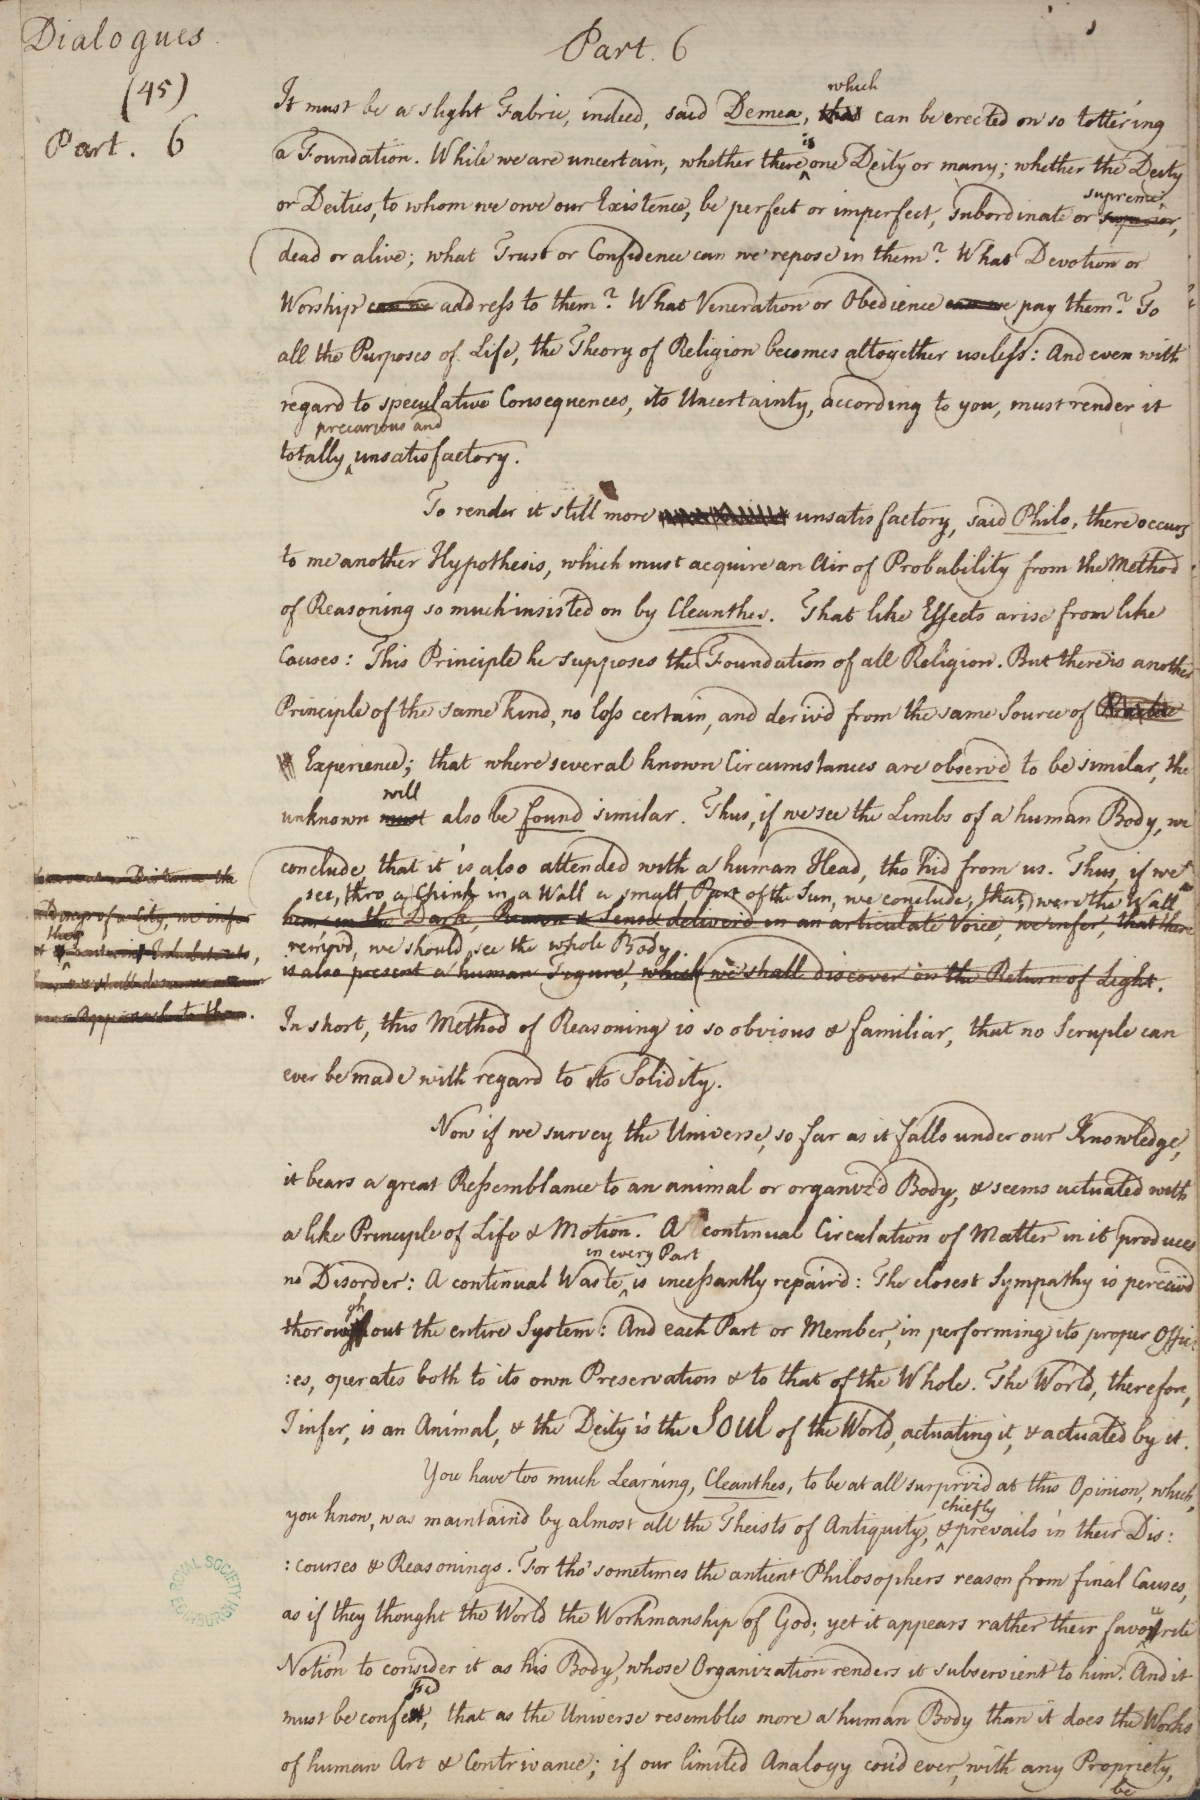 Dialogues.
(45)
Part. 6
Part. 6
which
It must be a slight Fabric, indeed, said Demea, that can be erected on so tottering
is
a Foundation. While we are uncertain, whether there one Deity or many; whether the Deity
supreme,
or Deities, to whom we owe our Existence, be perfect or imperfect, subordinate or superior,
dead or alive; what Trust or Confidence can we repose in them? What Devotion or
Worship can we address to them? What Veneration or Obedience can we pay them? To
all the Purposes of Life, the Theory of Religion becomes altogether useless: And even with
regard to speculative Consequences, its Uncertainty, according to you, must render it
precarious and
totally unsatisfactory.
To render it still more unsatisfactory, said Philo, there occurs
to me another Hypothesis, which must acquire an Air of Probability from the Method
of Reasoning so much insisted on by Cleanthes. That like Effects arise from like
Causes: This Principle he supposes the Foundation of all Religion. But there is another
Principle of the same kind, no less certain, and deriv'd from the same Source of
Experience; that where several known Circumstances are observ'd to be similar, the
will
unknown must also be found similar. Thus, if we see the Limbs of a human Body, we
conclude, that it is also attended with a human Head, tho hid from us. Thus, if we
see, thro a Chink in a Wall a small Part of the Sun, we conclude, that, were the Wall
hear, in the Dark, Reason & Sense deliver'd in an articulate Voice, we infer, that there
remov'd, we should see the whole Body
is also present a human Figure, which we shall discover on the Return of Light.
Distance the
of a City, we infer
Inhabitants,
Approach to them.
In short, this Method of Reasoning is so obvious & familiar, that no Scruple can
ever be made with regard to its Solidity.
Now if we survey the Universe, so far as it falls under our Knowledge,
it bears a great Resemblance to an animal or organiz'd Body, & seems actuated with
a like Principle of Life & Motion. A continual Circulation of Matter in it produces
in every Part
no Disorder: A continual Waste is incessantly repair'd: The closest Sympathy is perceiv'd
gh
thoroughout the entire System: And each Part or Member, in performing its proper Offic:
:es, operates both to its own Preservation & to that of the Whole. The World, therefore,
I infer, is an Animal, & the Deity is the Soul of the World, actuating it, & actuated by it.
You have too much Learning, Cleanthes, to be at all surpriz'd at this Opinion, which,
chiefly
you know, was maintain'd by almost all the Theists of Antiquity, & prevails in their Dis:
:courses & Reasonings. For tho' sometimes the antient Philosophers reason from final Causes,
as if they thought the World the Workmanship of God; yet it appears rather their favourite
Notion to consider it as his Body, whose Organization renders it subservient to him. And it
must be confest, that as the Universe resembles more a human Body than it does the Works
of human Art & Contrivance; if our limited Analogy cou'd ever, with any Propriety,
be
ROYAL SOCIETY
EDINBURGH